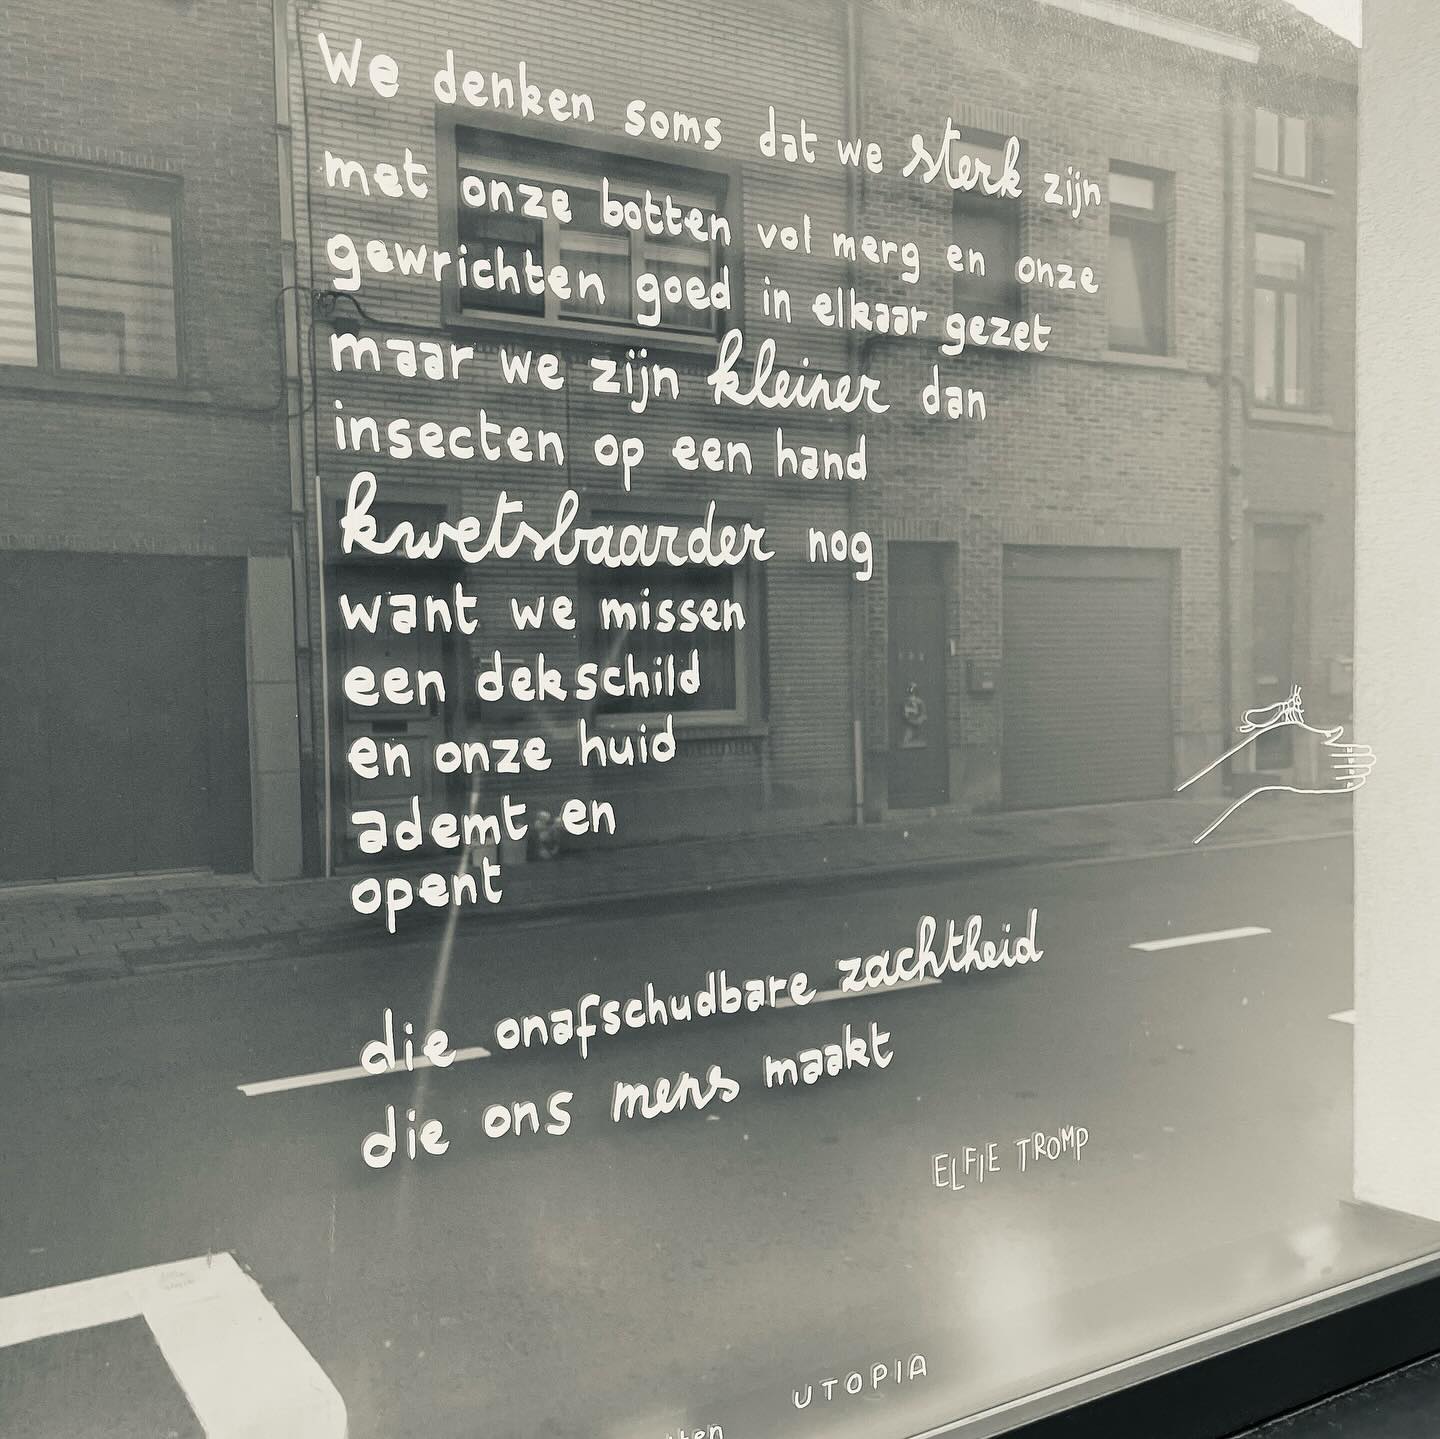 We denken soms dat we sterk zijn
met onze botten vol merg en onze
gewrichten goed in elkaar gezet
maar we zijn kleiner dan
insecten op een hand
kwetsbaarder nog
want we missen
een dekschild
en onze huid
ademt en
opent
die onafschudbare zachtheid
die ons mens maakt
ELFIE TROMP
UTOPIA